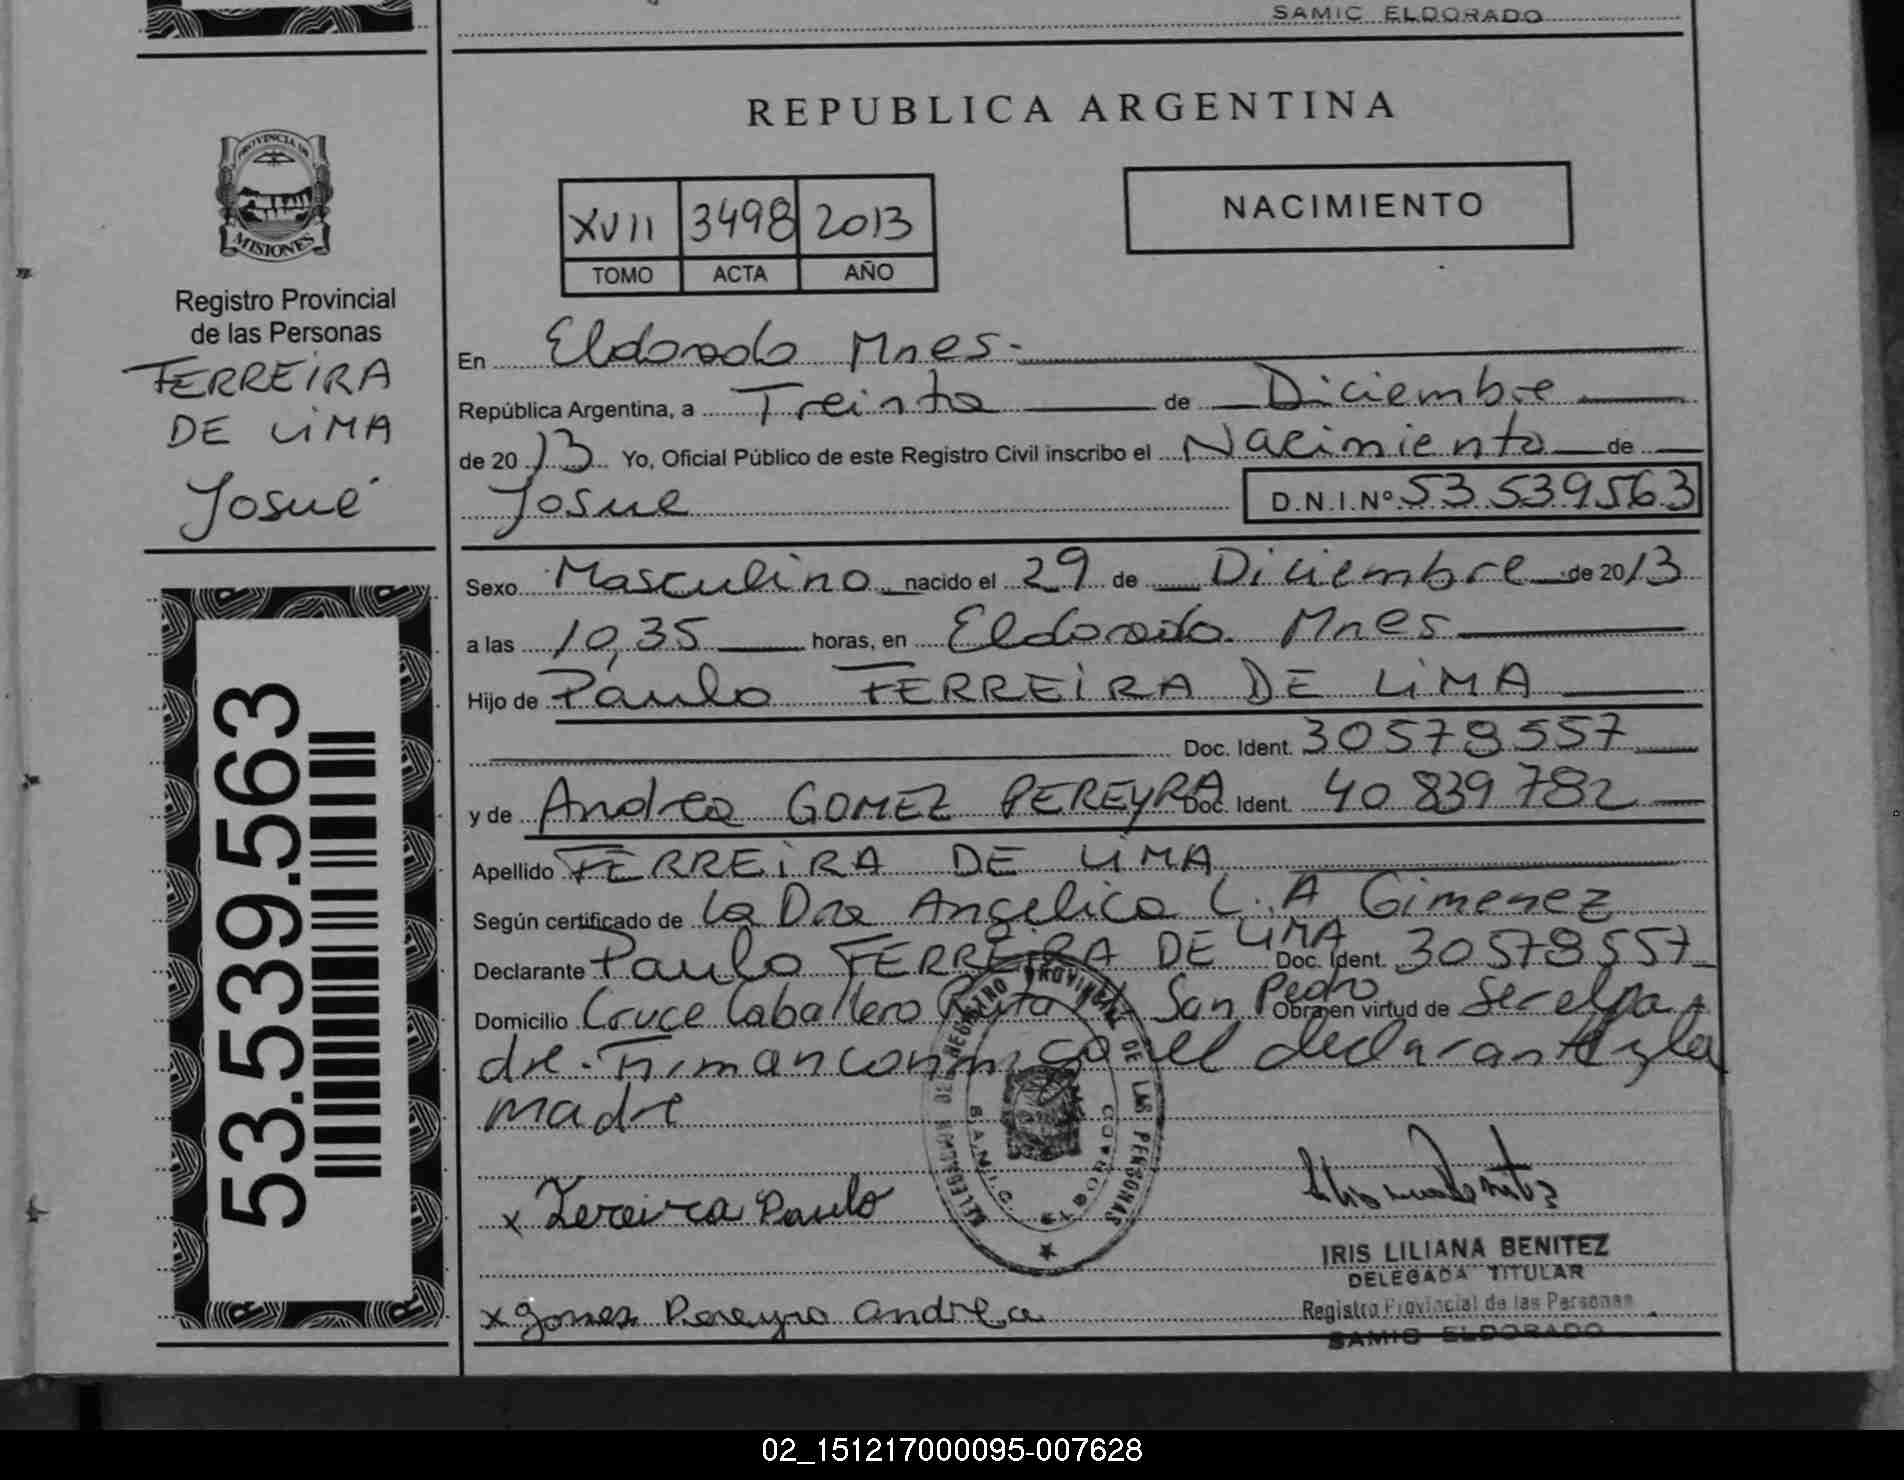 SAMIC ELDORADO
REPUBLICA ARGENTINA
NACIMIENTO
XVII 3498 2013
TOMO ACTA AÑO
PROVINCIA DE
MISIONES
Registro Provincial
de las Personas
FERREIRA
DE LIMA
Josué
53.539.563
En Eldorado Mnes.
República Argentina, a Treinta de Diciembre
de 2013 Yo, Oficial Público de este Registro Civil inscribo el Nacimiento de
Josue D.N.I.Nº 53.539563
Sexo Masculino nacido el 29 de Diciembre de 2013
a las 10,35 horas, en Eldorado Mnes
Hijo de Paulo FERREIRA DE LIMA
Doc. Ident. 30578557
y de Andrea GOMEZ PEREYRA Doc. Ident. 40 839 782
Apellido FERREIRA DE LIMA
Según certificado de la Dra Angelica L. A Gimenez
Declarante Paulo FERREIRA DE LIMA Doc. Ident. 30578557
Domicilio Cruce Caballero Ruta San Pedro Obra en virtud de ser el pa
dre. Firman conmigo el declarante y la
madre
REGISTRO PROVINCIAL DE LAS PERSONAS
x Fereira Paulo
IRIS LILIANA BENITEZ
DELEGADA TITULAR
Registro Provincial de las Personas
SAMIC ELDORADO
x gomez Pereyra andrea
02_151217000095-007628